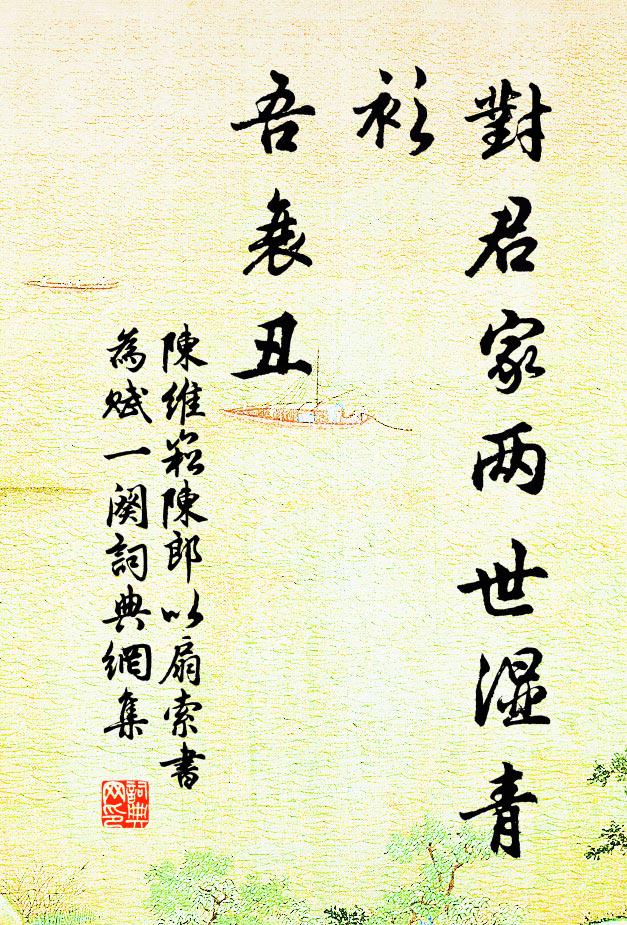 對君家两世濕青
衫
吾衰丑
陳維崧陳郎以扇索書
為賦一闋詞典網集
詞典
网印